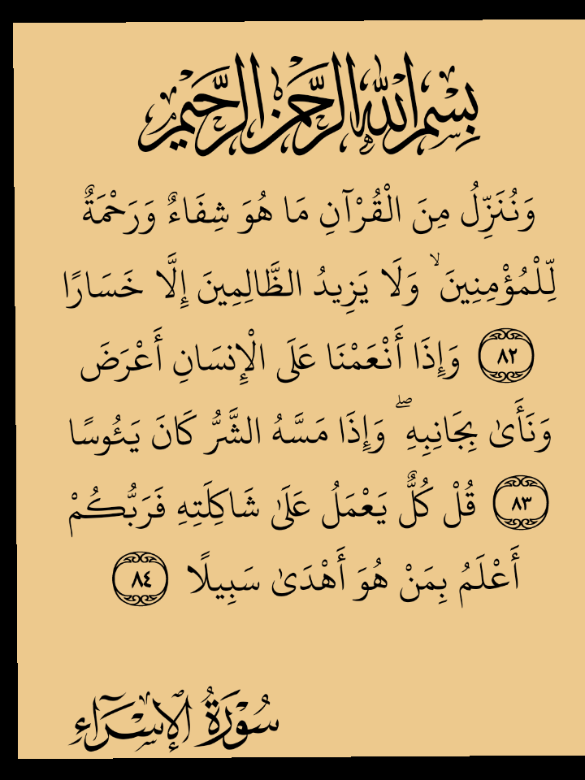 بِسْمِ اللَّهِ الرَّحْمَٰنِ الرَّحِيمِ
وَنُنَزِّلُ مِنَ الْقُرْآنِ مَا هُوَ شِفَاءٌ وَرَحْمَةٌ
لِّلْمُؤْمِنِينَ ۙ وَلَا يَزِيدُ الظَّالِمِينَ إِلَّا خَسَارًا
٨٢ وَإِذَا أَنْعَمْنَا عَلَى الْإِنسَانِ أَعْرَضَ
وَنَأَىٰ بِجَانِبِهِ ۖ وَإِذَا مَسَّهُ الشَّرُّ كَانَ يَئُوسًا
٨٣ قُلْ كُلٌّ يَعْمَلُ عَلَىٰ شَاكِلَتِهِ فَرَبُّكُمْ
أَعْلَمُ بِمَنْ هُوَ أَهْدَىٰ سَبِيلًا ٨٤
سُورَةُ الْإِسْرَاءِ